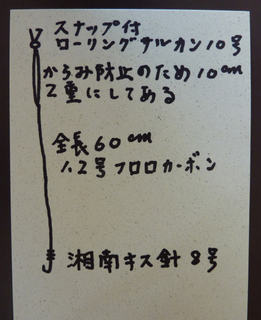 スナップ付
ローリングサルカン10号
からみ防止のため10cm
2重にしてある
全長60cm
1.2号フロロカーボン
湘南キス針8号